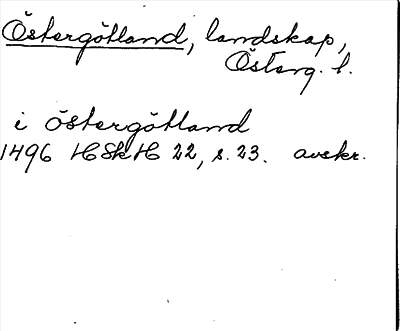 Östergötland, landskap,
Österg. l.
i östergötland
1496 HSkH 22, s. 23. avskr.